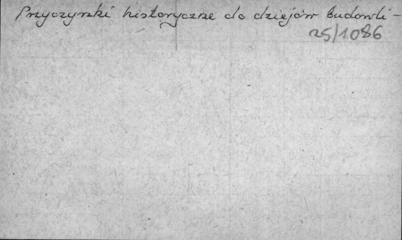 Przyczynki historyczne do dziejów budowli-
25/1086